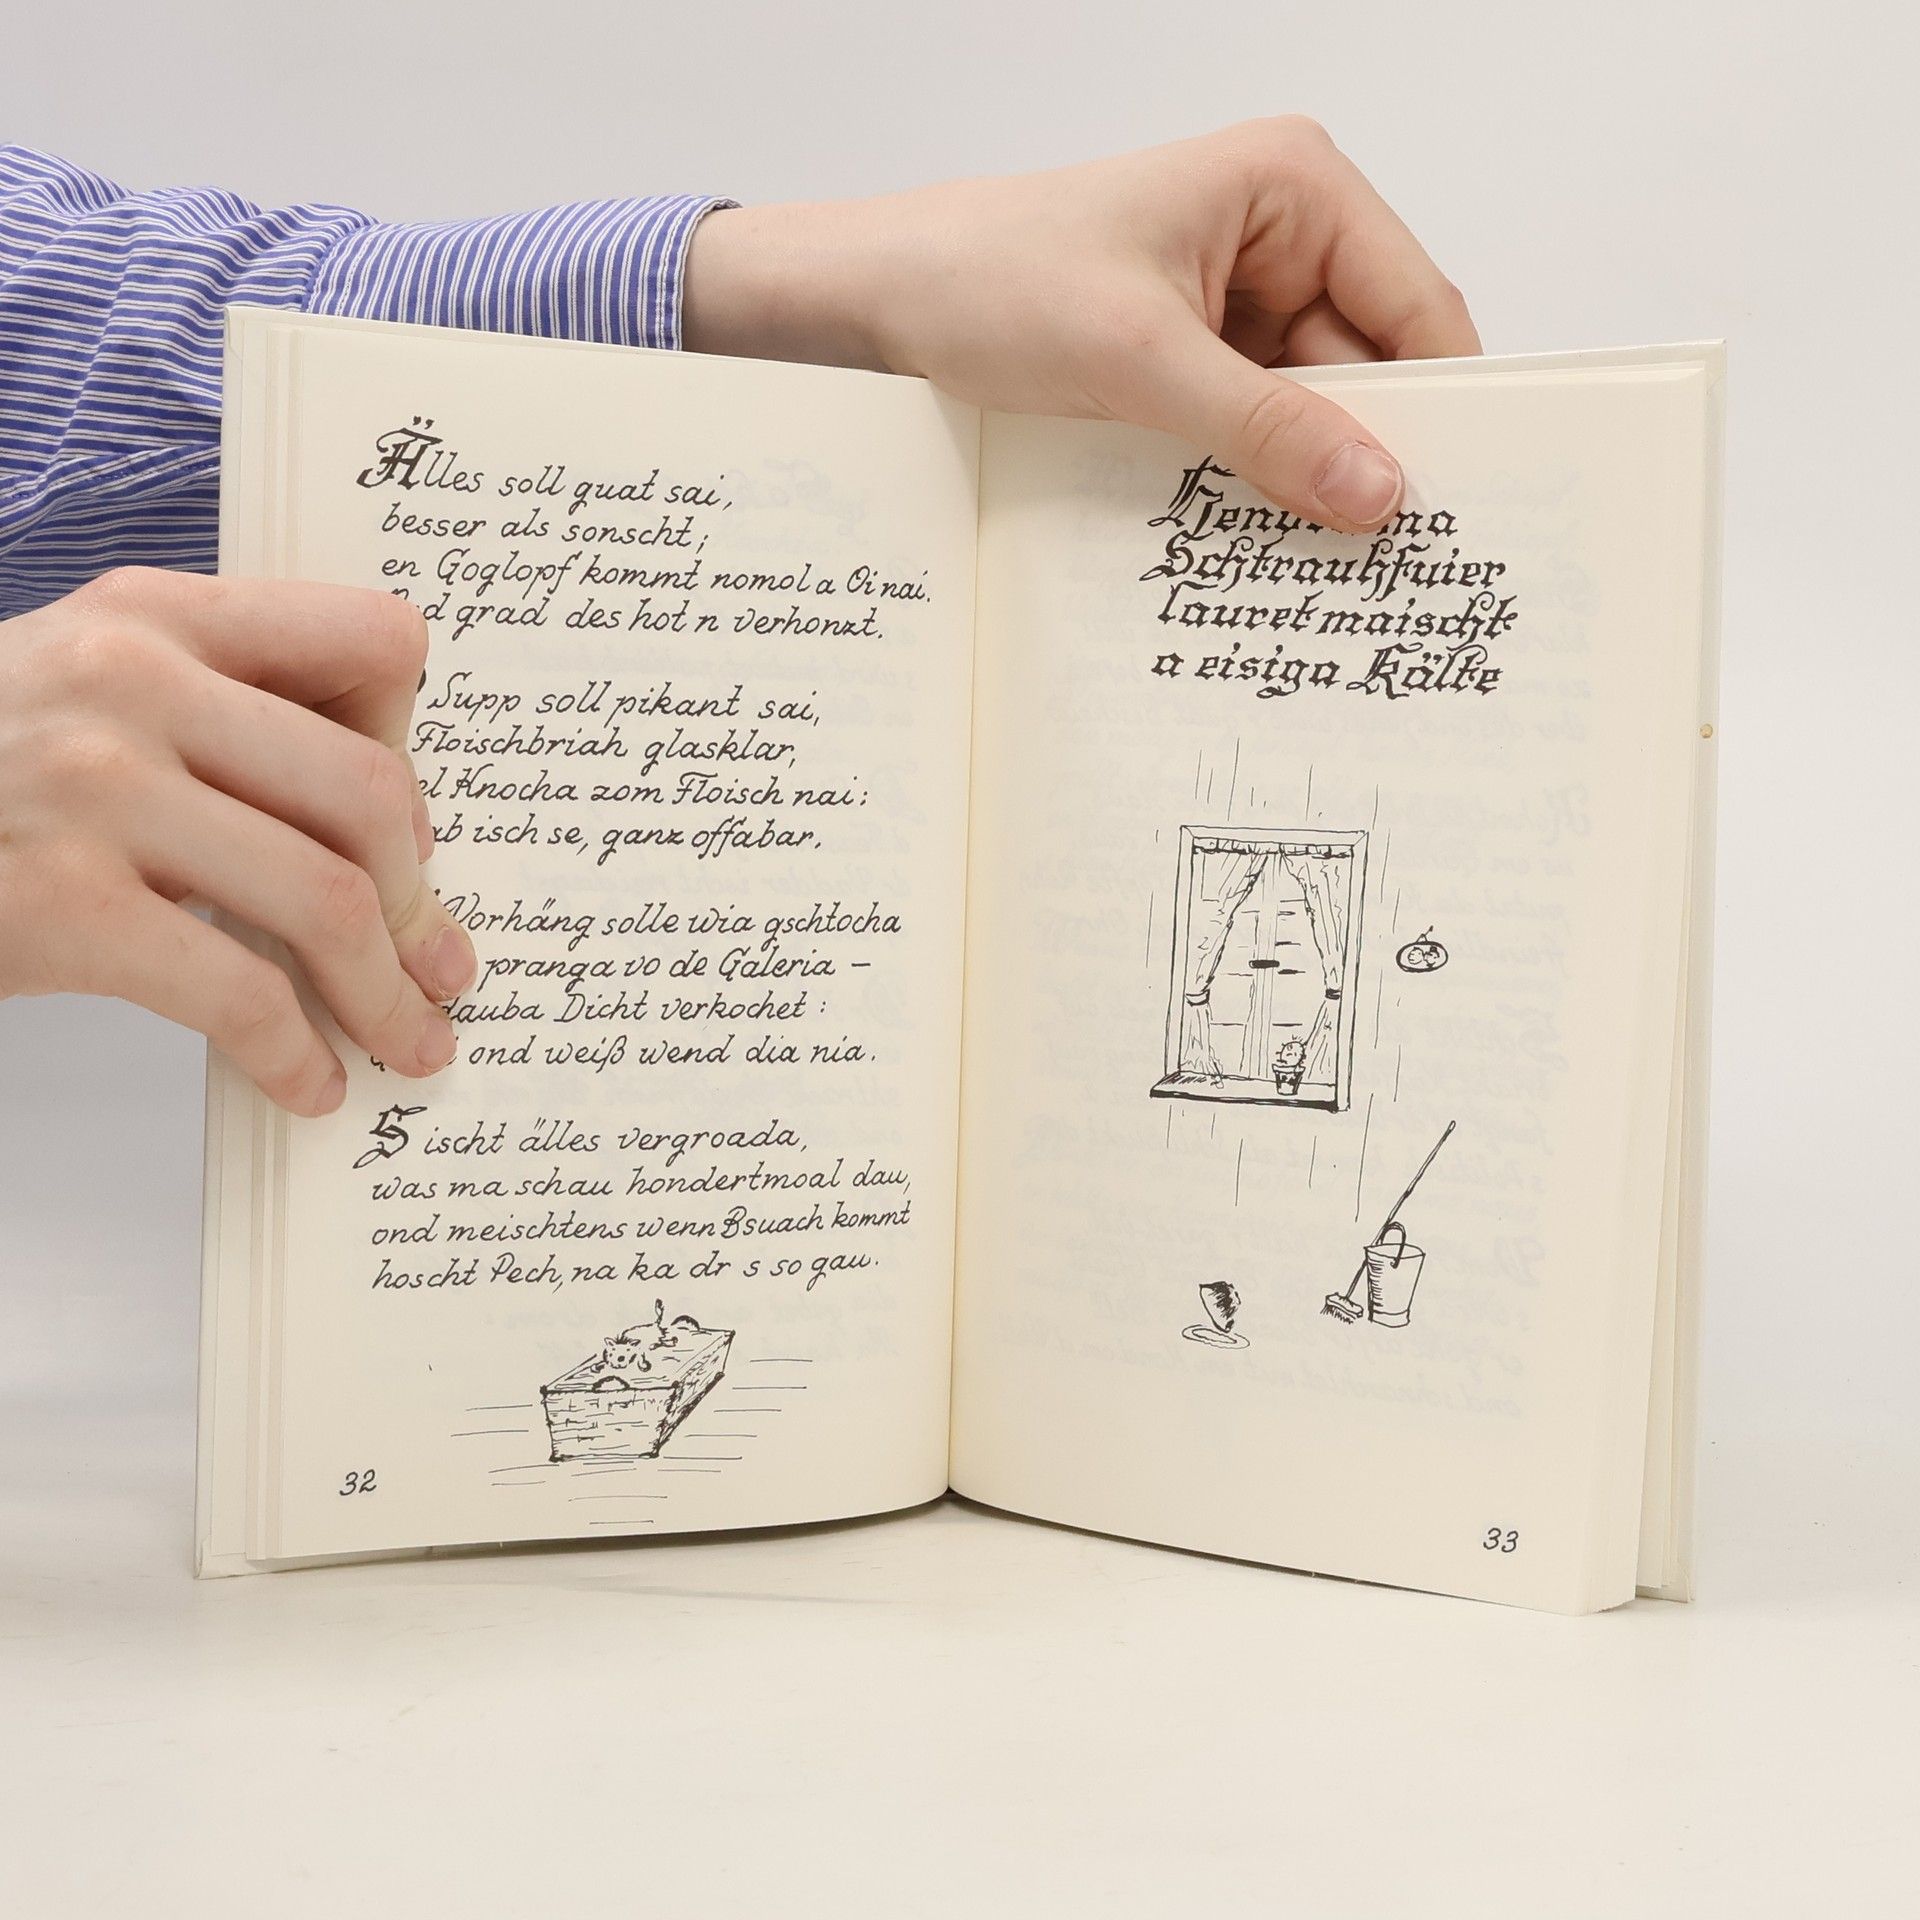 Älles soll guat sai,
besser als sonscht;
en Goglopf kommt nomol a Oi nai.
grad des hot n verhonzt.
Supp soll pikant sai,
Floischbriah glasklar,
Knocha zom Floisch nai:
isch se, ganz offabar.
Vorhäng solle wia gschtocha
pranga vo de Galeria –
Dicht verkochet:
ond weiß wend dia nia.
S ischt älles vergroada,
was ma schau hondertmoal dau,
ond meischtens wenn Bsuach kommt
hoscht Pech, na ka dr s so gau.
32
Schtrauhfuier
lauret maischt
a eisiga Kälte
33